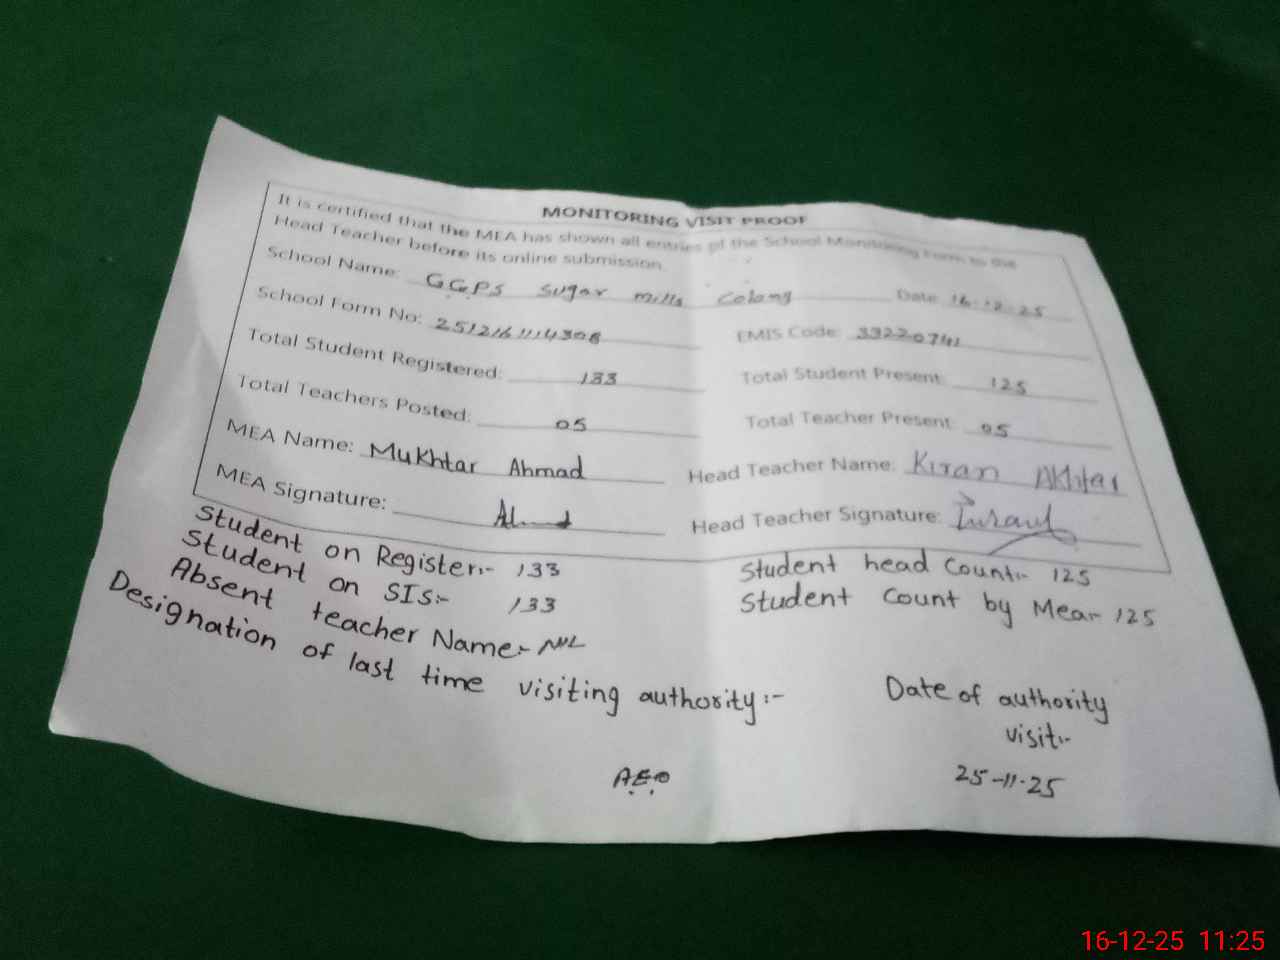 MONITORING VISIT PROOF
It is certified that the MEA has shown all entries of the School Monitoring Form to the
Head Teacher before its online submission.
School Name: GGPS Sugar mills Colony Date 16-12-25
School Form No: 251216 EMIS Code: 33220741
Total Student Registered: 133 Total Student Present: 125
Total Teachers Posted: 05 Total Teacher Present: 05
MEA Name: Mukhtar Ahmad Head Teacher Name: Kiran Akhtar
MEA Signature: Head Teacher Signature:
Student on Register:- 133 Student head Count:- 125
Student on SIS:- 133 Student Count by Mea- 125
Absent teacher Name:- NIL
Designation of last time visiting authority:- Date of authority
visit:-
AEO 25-11-25
16-12-25 11:25